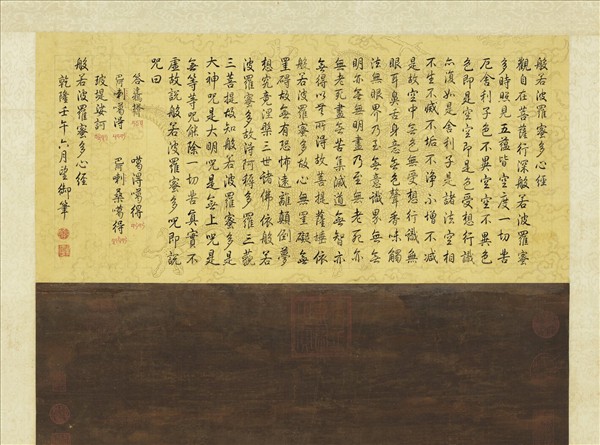 般若波羅蜜多心經
觀自在菩薩行深般若波羅蜜
多時照見五蘊皆空度一切苦
厄舍利子色不異空空不異色
色即是空空即是色受想行識
亦復如是舍利子是諸法空相
不生不滅不垢不淨不增不減
是故空中無色無受想行識無
眼耳鼻舌身意無色聲香味觸
法無眼界乃至無意識界無無
明亦無無明盡乃至無老死亦
無老死盡無苦集滅道無智亦
無得以無所得故菩提薩埵依
般若波羅蜜多故心無罣礙無
罣礙故無有恐怖遠離顛倒夢
想究竟涅槃三世諸佛依般若
波羅蜜多故得阿耨多羅三藐
三菩提故知般若波羅蜜多是
大神咒是大明咒是無上咒是
無等等咒能除一切苦真實不
虛故說般若波羅蜜多咒即說
咒曰
噶得噶得
喇噶得 喇桑噶得
玻提娑訶
般若波羅蜜多心經
乾隆壬午六月望御筆